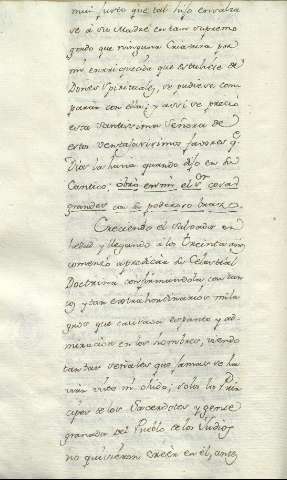 mui justo que tal hijo ensalza
se â su Madre en tan supremo
grado que ninguna Criatura por
mui enrriquecida que estubiese de
Dones Spirituales, se pudiese com
parar con ella; y assi se preció
esta Santissima Señora de
estos ventajosissimos favores q.e
Dios la hacia quando dijo en su
Cantico, obró en mi el S.or cosas
grandes con su poderoso brazo.
Creciendo el Salvador en
la edad y llegando â los treinta años
comenzó a predicar su Celestial
Doctrina confirmandola con tan
tos y tan extrahordinarios mila
gros que causava espanto y ad-
miracion en los hombres, viendo
tantas señales que jamas se ha
vian visto ni ohido; solo los Prin
cipes de los Sacerdotes y gente
granada del Pueblo de los Judios
no quisieron creer en él, antes